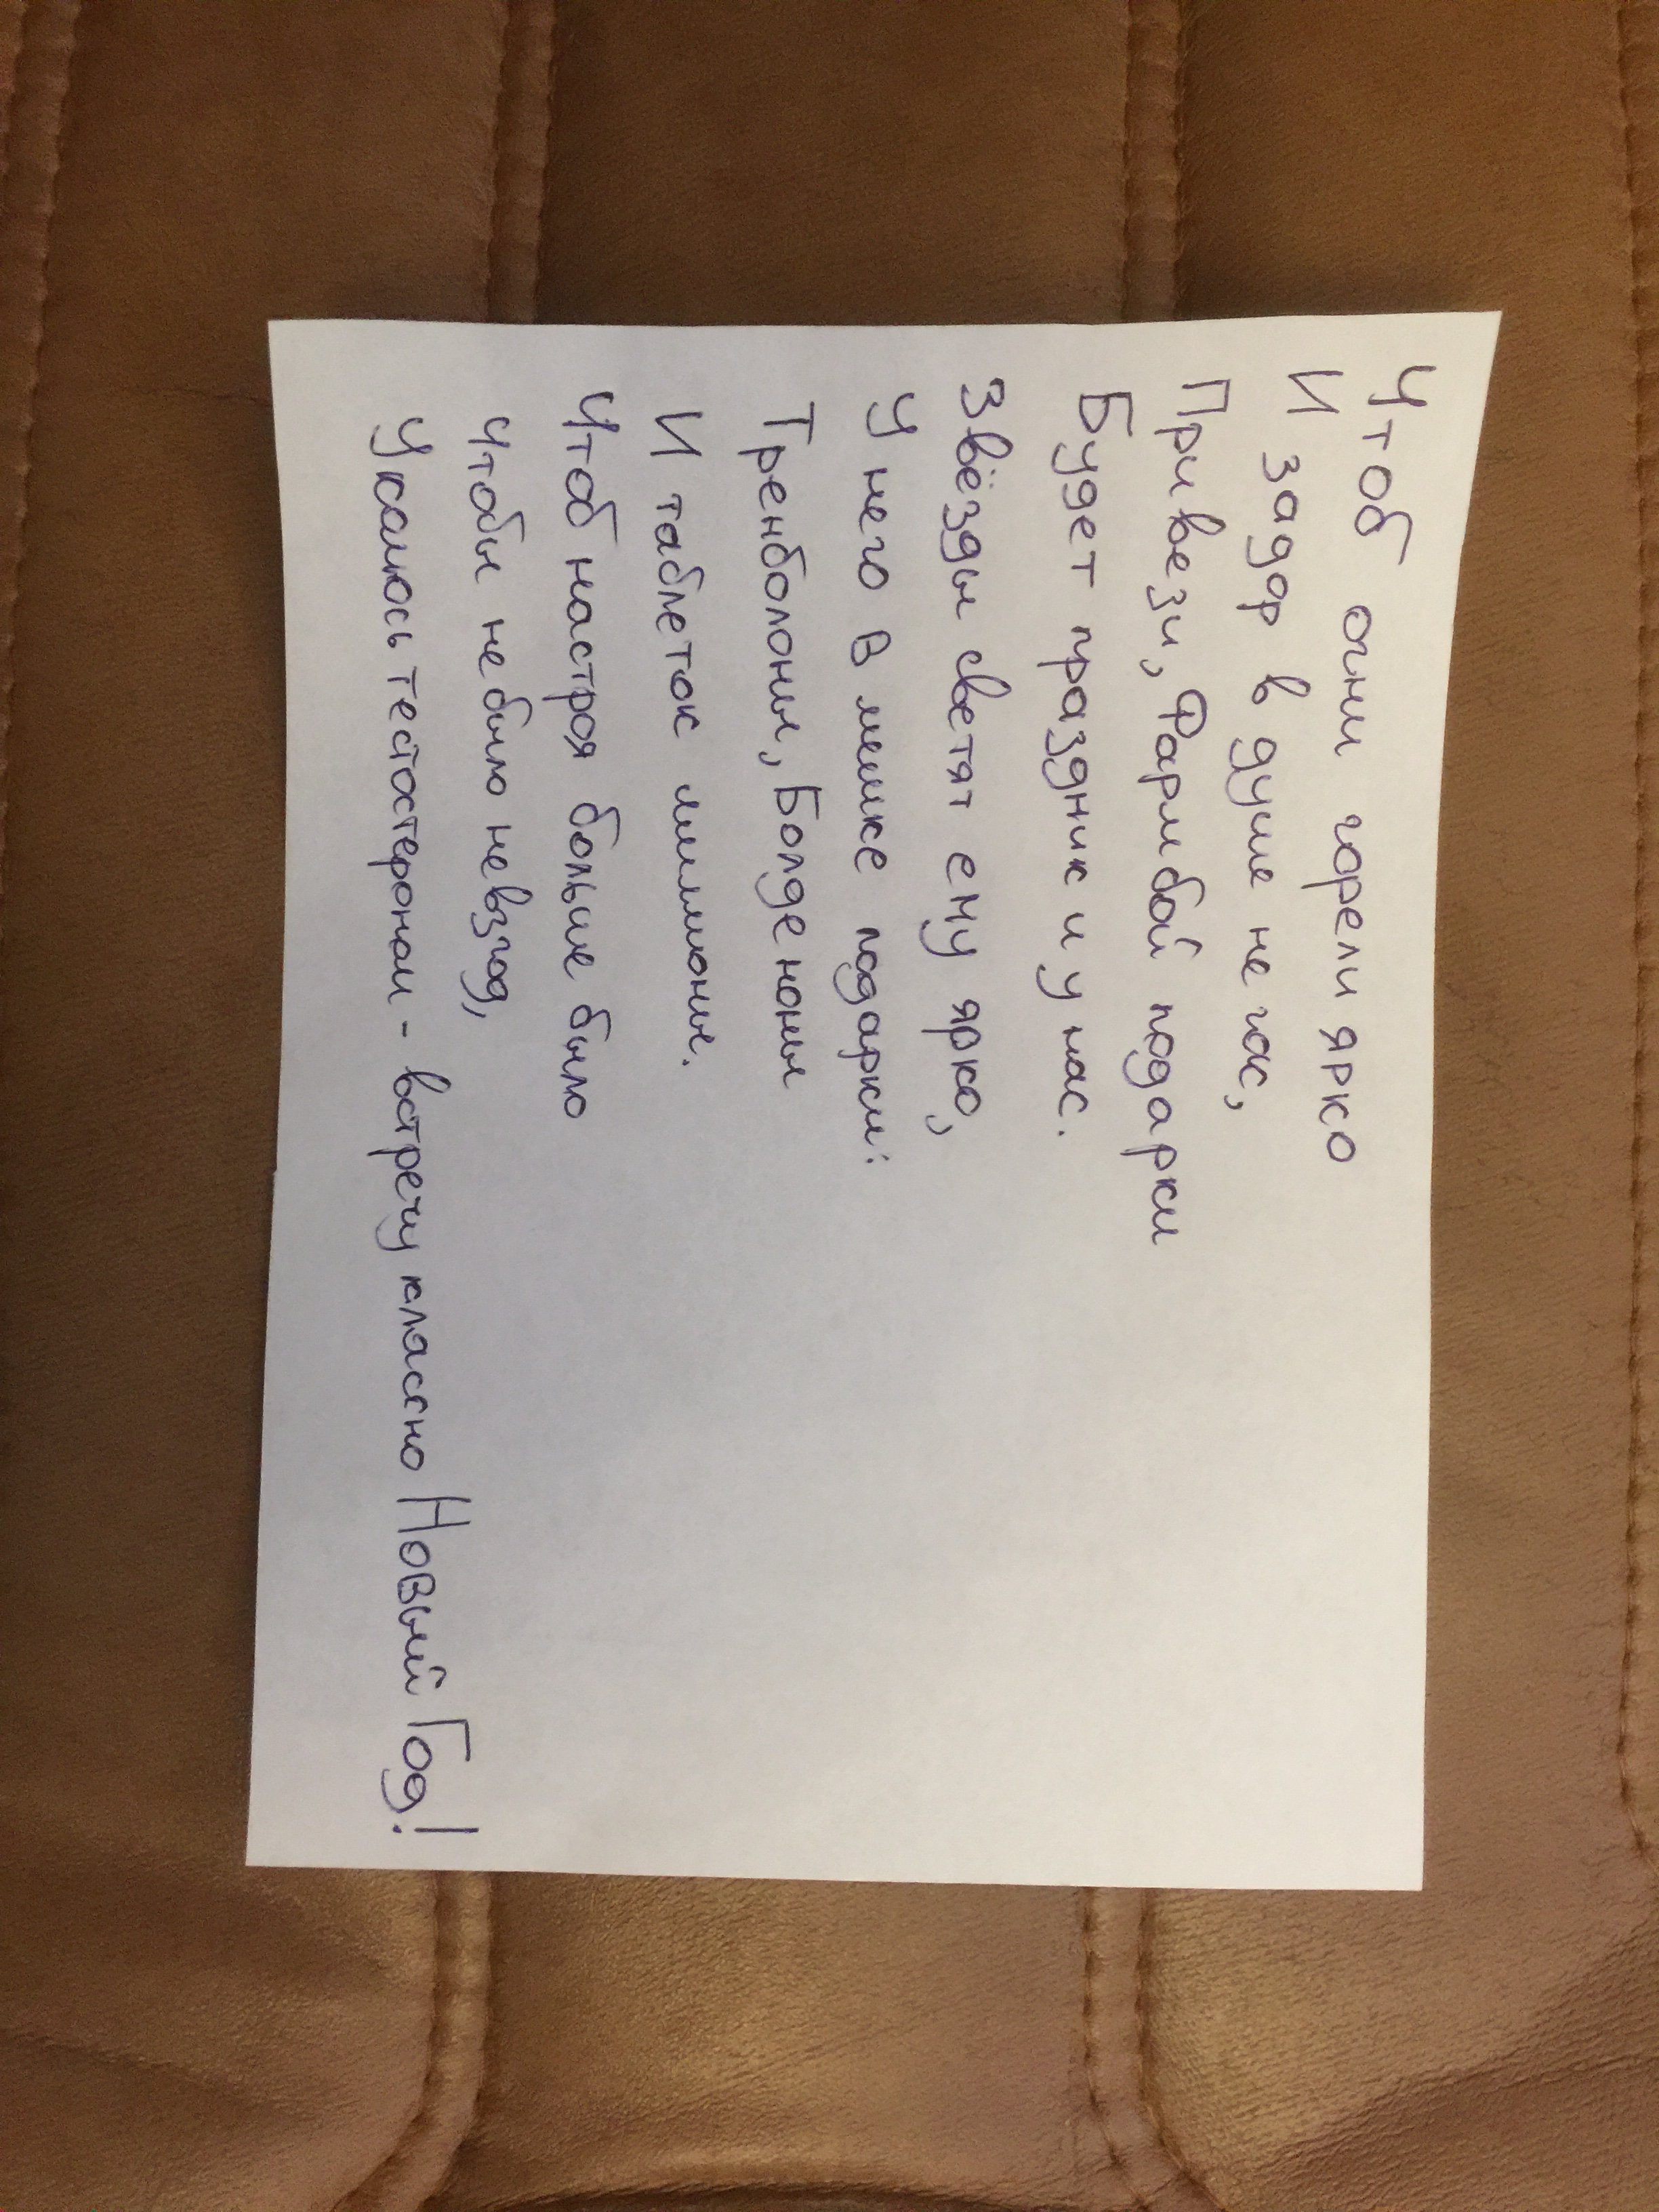 Чтоб огни горели ярко
И задор в душе не гас,
Привези, Фармбой подарки
Будет праздник и у нас.
Звёзды светят ему ярко,
У него в мешке подарки:
Тренболоны, Болденоны
И таблеток миллионы.
Чтоб настроя больше было
Чтобы не было невзгод,
Уколюсь тестостероном - встречу классно Новый Год!